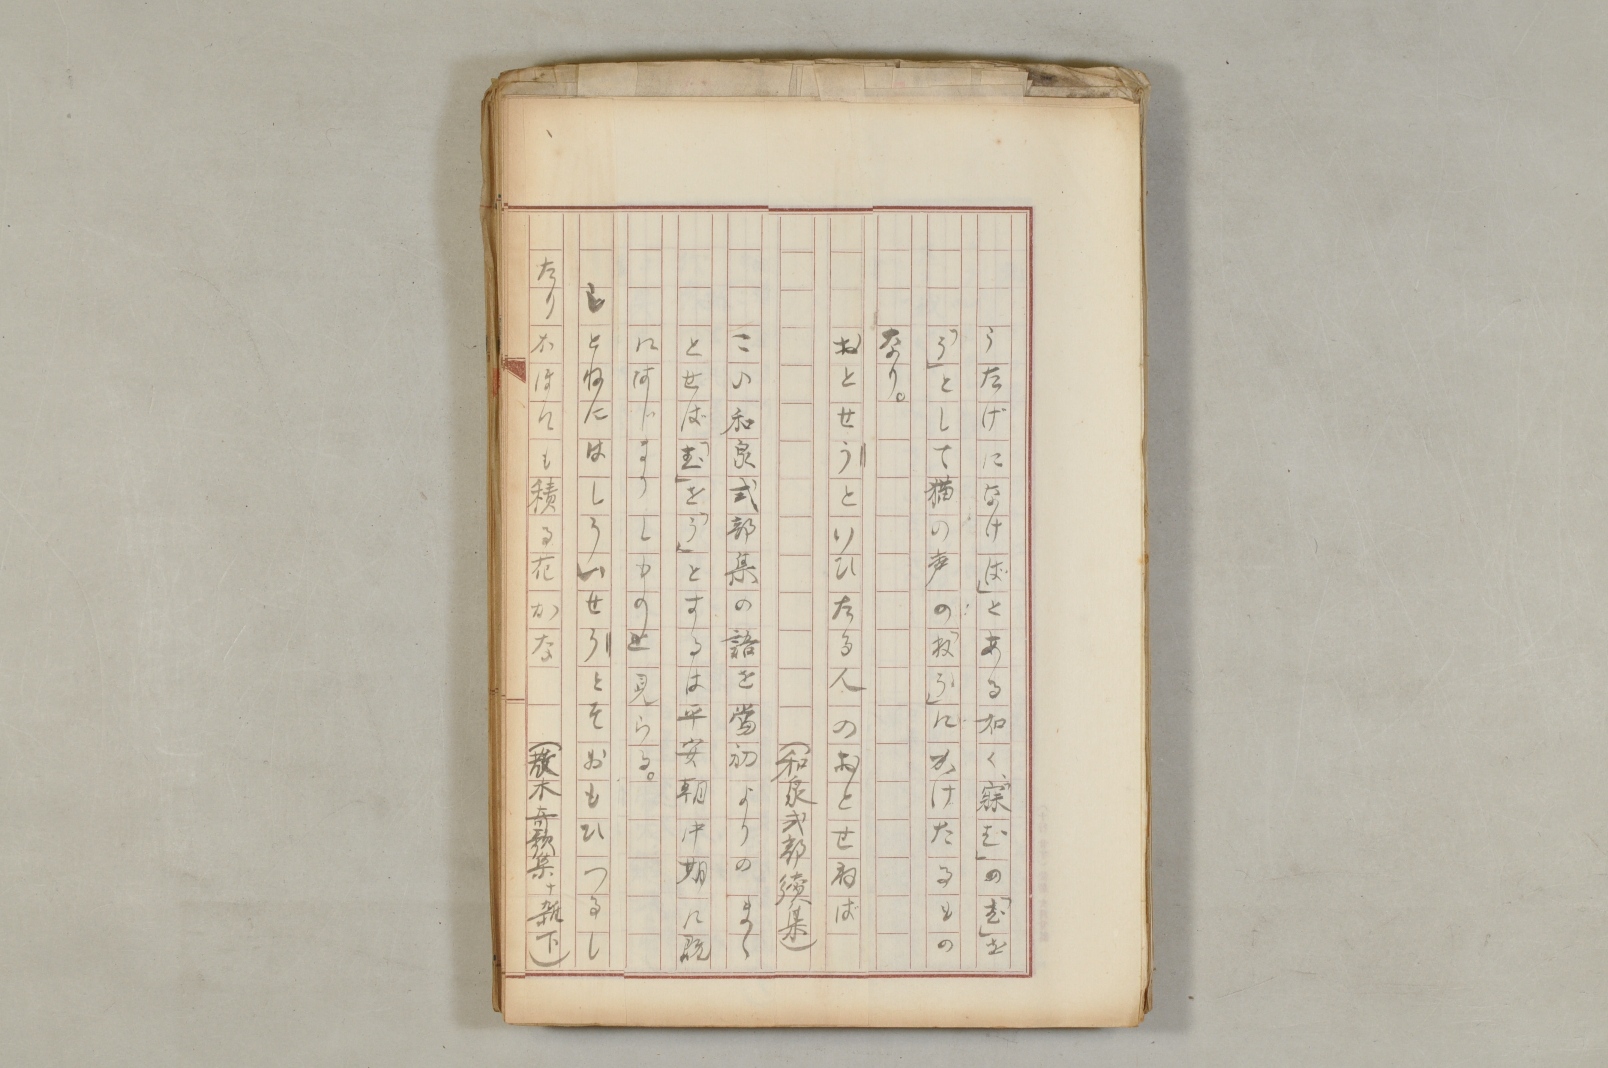 うたげになけば」とある如く、「寐む」の「む」を
「う」として猫の声の「ねう」にかけたるもの
なり。
おとせうといひたる人のおとせねば
(和泉式部續集)
この和泉式部集の語を當初よりのまゝ
とせば「む」を「う」とするは平安朝中期に既
にはじまりしものと見らる。
とねにはしういせうとぞおもひつるし
たりかほにも積る花かな　(散木奇歌集十雑下)